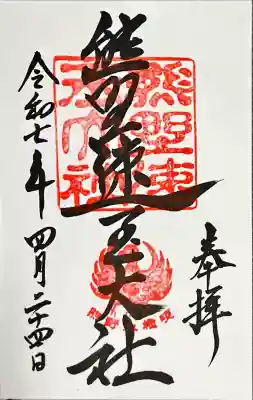 奉拝
熊野速玉大社
令和七年四月二十四日
熊野速玉大社